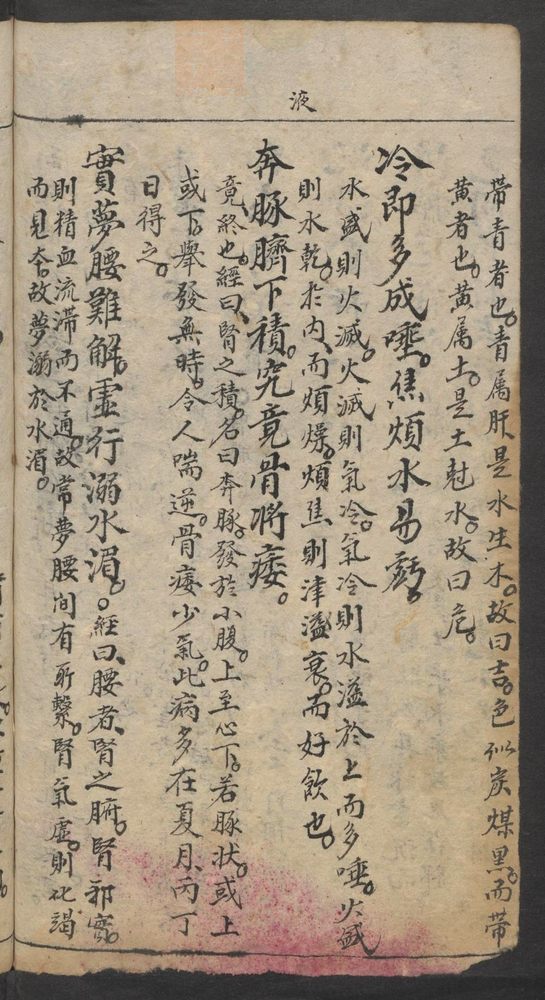 液
帶青者也。青属肝、是水生木。故曰吉。色似炭煤黑。而帶
黄者也。黄属土。是土尅水。故曰危。
冷即多成唾。焦煩水易虧。
水盛則火滅。火滅則氣冷。氣冷則水溢於上而多唾。火盛
則水乾。於内、而煩燥。煩焦則津溢衰。而好飲也。
奔豚臍下積。究竟骨將痿。
竟、終也。經曰、腎之積。名曰奔豚。發於小腹。上至心下。若豚状。或上
或下。舉發無時。令人喘逆。骨痿少氣。此病多在夏月、丙丁
日得之。
實夢腰難解。虚行溺水湄。。經曰、腰者、腎之腑。腎邪實。
則精血流滞而不通。故常夢腰间有所繫。腎氣虚。則
而見本。故夢溺於水湄。